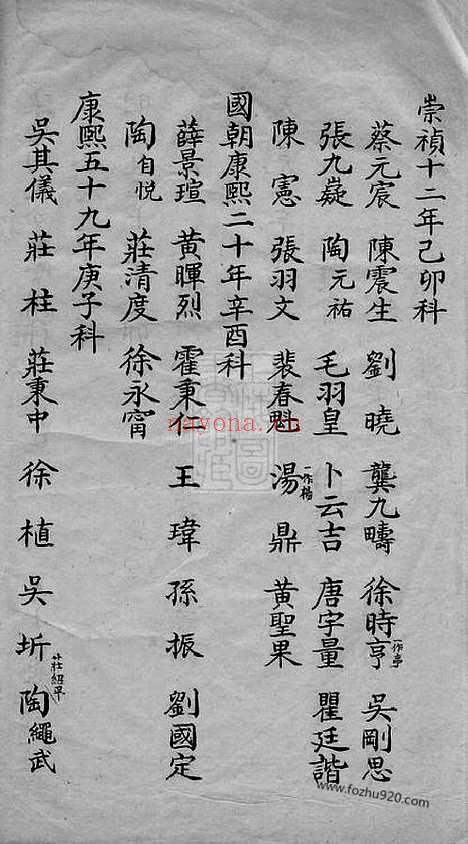 崇禎十二年己卯科
蔡元宸 陳震生 劉曉 龔九疇 徐時亨一作亭 吳剛思
張九嶷 陶元祐 毛羽皇 卜云吉 唐字量 瞿廷諧
陳憲 張羽文 裴春魁 湯一作楊鼎 黃聖果
國朝康熙二十年辛酉科
薛景瑄 黃暉烈 霍秉仁 王瑋 孫振 劉國定
陶自悅 莊清度 徐永甯
康熙五十九年庚子科
吳其儀 莊柱 莊秉中 徐植 吳圻 莊紹平 陶繩武
nayona.cn
www.fozhu920.com